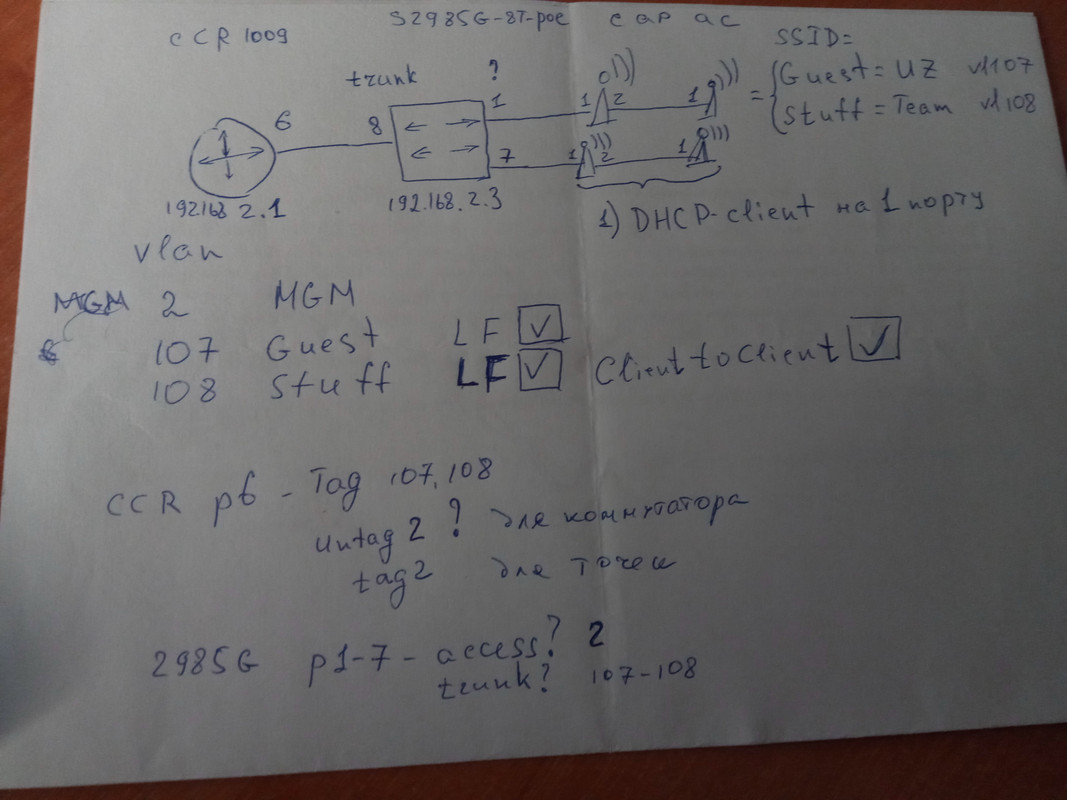 CCR 1009
S2985G-8T-poe
cap ac
SSID=
Guest = UZ vl107
Stuff = Team vl108
trunk
?
6
8
1
7
1 2
1
1 2
1
=
192.168 2.1
192.168.2.3
1) DHCP-client на 1 порту
vlan
MGM 2 MGM
107 Guest LF
108 Stuff LF Client to Client
CCR p6 - Tag 107, 108
untag 2 ? для коммутатора
tag 2 для точек
2985G p1-7 - access? 2
trunk? 107-108